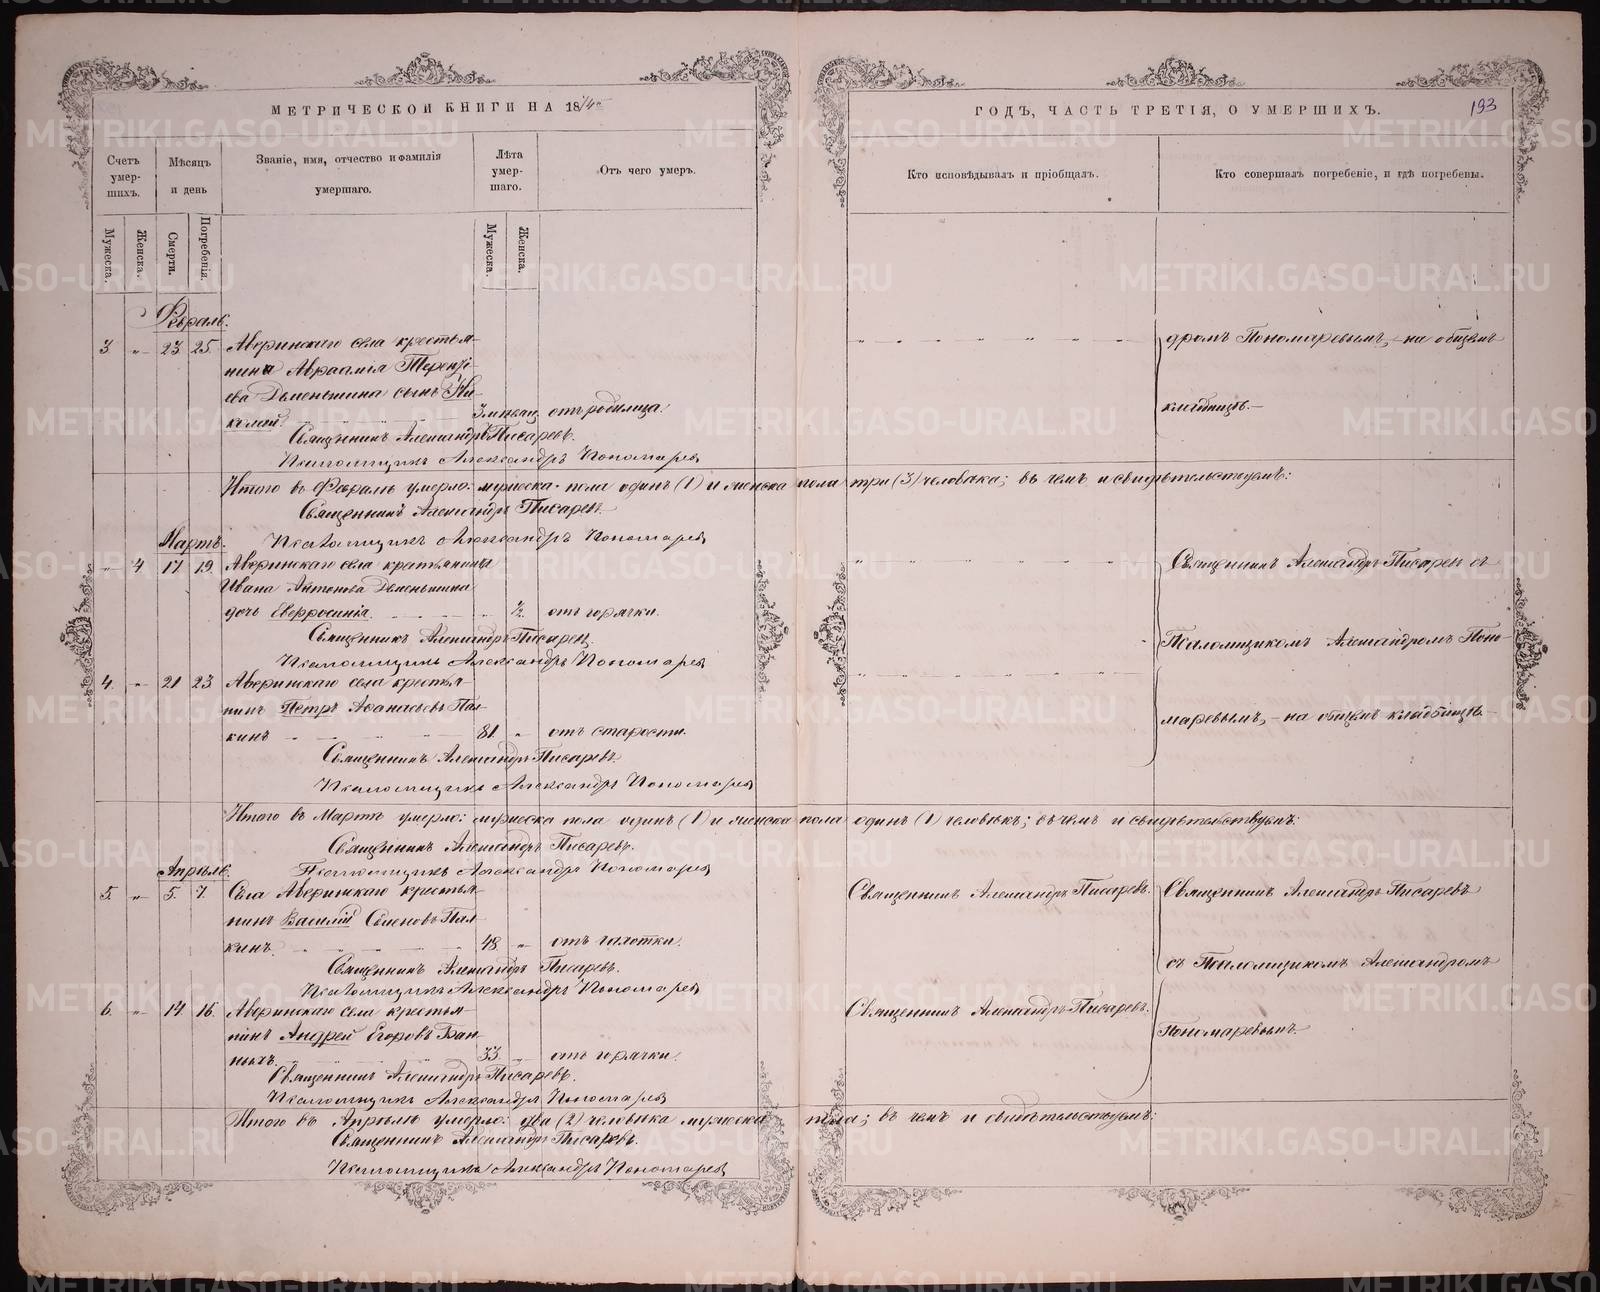 МЕТРИЧЕСКОЙ КНИГИ НА 18
ГОДЪ, ЧАСТЬ ТРЕТІЯ, О УМЕРШИХЪ.
193
Счетъ умер-шихъ.
Мѣсяцъ и день
Званіе, имя, отчество и фамилія умершаго.
Лѣта умер-шаго.
Отъ чего умеръ.
Кто исповѣдывалъ и пріобщалъ.
Кто совершалъ погребеніе, и гдѣ погребены.
Мужеска.
Женска.
Смерти.
Погребенія.
Мужеска.
Женска.
Февраль.
3. „ 23. 25. Аверинскаго села крестья-
нина Авраамія Теренті-
ева Деменьшина сынъ Ни-
колай. 3 отъ родимца.
дромъ Пономаревымъ, – на общемъ
кладбищѣ. –
Священникъ Александръ Писаревъ.
Псаломщикъ Александръ Пономарев
Итого въ Февралѣ умерло: мужеска пола одинъ (1) и женска пола три (3) человѣка; въ чемъ и свидѣтельствуемъ:
Священникъ Александръ Писаревъ.
Псаломщикъ Александръ Пономарев
Мартъ.
„ 4. 17. 19. Аверинскаго села крестьянина
Ивана Антонова Деменьшина
дочь Евфросинія. ½ отъ горячки.
Священникъ Александръ Писаревъ съ
Псаломщикомъ Александромъ Поно-
маревымъ, – на общемъ кладбищѣ. –
Священникъ Александръ Писаревъ.
Псаломщикъ Александръ Пономарев
4. „ 21. 23. Аверинскаго села крестья-
нинъ Петръ Афанасьевъ Пал-
кинъ 81. „ отъ старости.
Священникъ Александръ Писаревъ.
Псаломщикъ Александръ Пономарев
Итого въ Мартѣ умерло: мужеска пола одинъ (1) и женска пола одинъ (1) человѣкъ; въ чемъ и свидѣтельствуемъ:
Священникъ Александръ Писаревъ.
Псаломщикъ Александръ Пономарев
Апрѣль.
5. „ 5. 7. Села Аверинскаго крестья-
нинъ Василій Семеновъ Пал-
кинъ. 48. „ отъ чахотки.
Священникъ Александръ Писаревъ.
Священникъ Александръ Писаревъ
съ Псаломщикомъ Александромъ
Пономаревымъ
Священникъ Александръ Писаревъ.
Псаломщикъ Александръ Пономарев
6. „ 14. 16. Аверинскаго села крестья-
нинъ Андрей Егоровъ Бан-
ныхъ. 33. „ отъ горячки.
Священникъ Александръ Писаревъ.
Священникъ Александръ Писаревъ.
Псаломщикъ Александръ Пономарев
Итого въ Апрѣлѣ умерло: два (2) человѣка мужеска пола; въ чемъ и свидѣтельствуемъ:
Священникъ Александръ Писаревъ.
Псаломщикъ Александръ Пономарев
METRIKI.GASO-URAL.RU